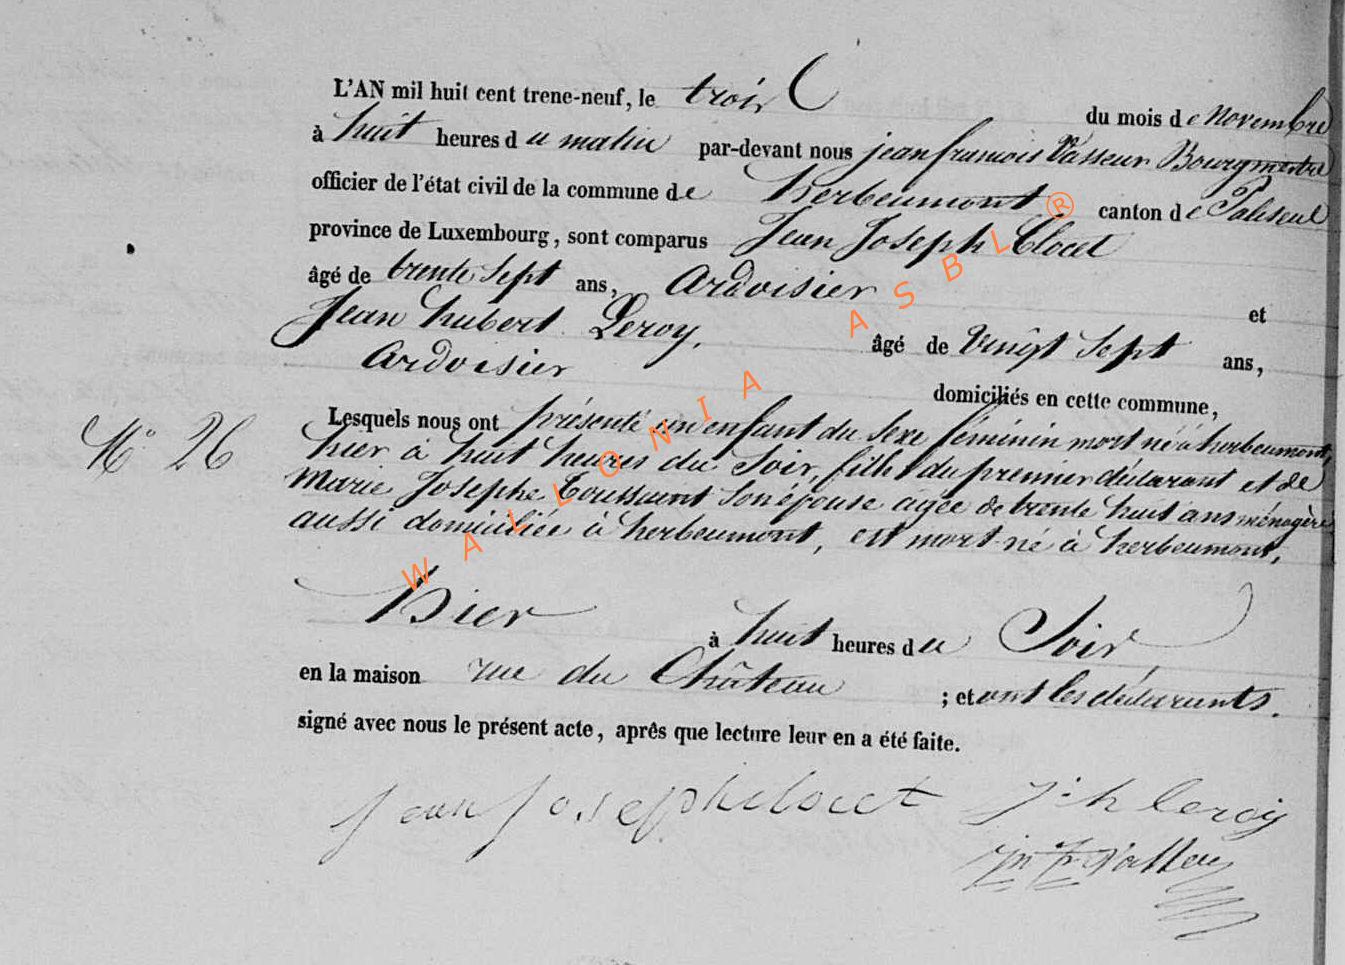 L'AN mil huit cent trene-neuf, le trois du mois de novembre
à huit heures du matin par-devant nous jean francois Vasseur Bourgmestre
officier de l'état civil de la commune de herbeumont canton de Paliseul
province de Luxembourg, sont comparus Jean Joseph Clocet
âgé de trente sept ans, Ardoisier et
Jean hubert Leroy, âgé de vingt sept ans,
Ardoisier domiciliés en cette commune,
Lesquels nous ont présenté un enfant du sexe féminin mort né à herbeumont,
hier à huit heures du Soir, fille du premier déclarant et de
Marie Josephe Toussaint son épouse agée de trente huit ans ménagère
aussi domiciliée à herbeumont, est mort-né à herbeumont,
N° 26
hier à huit heures du Soir
en la maison rue du Château ; et ont les déclarants.
signé avec nous le présent acte, après que lecture leur en a été faite.
jean joseph clocet j h leroy
WALLONIA ASBL ®